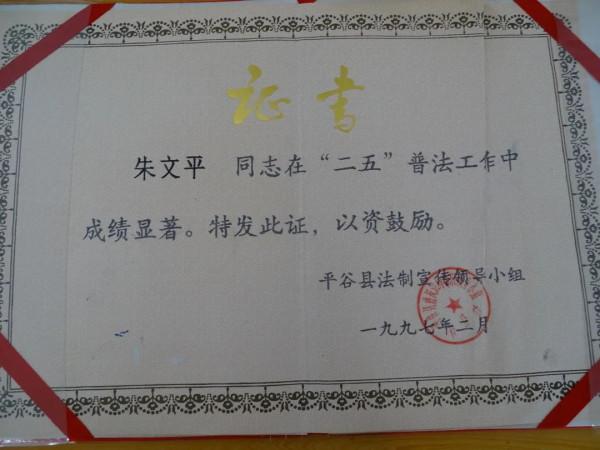 证书
朱文平 同志在“二五”普法工作中
成绩显著。特发此证，以资鼓励。
平谷县法制宣传领导小组
一九九七年二月